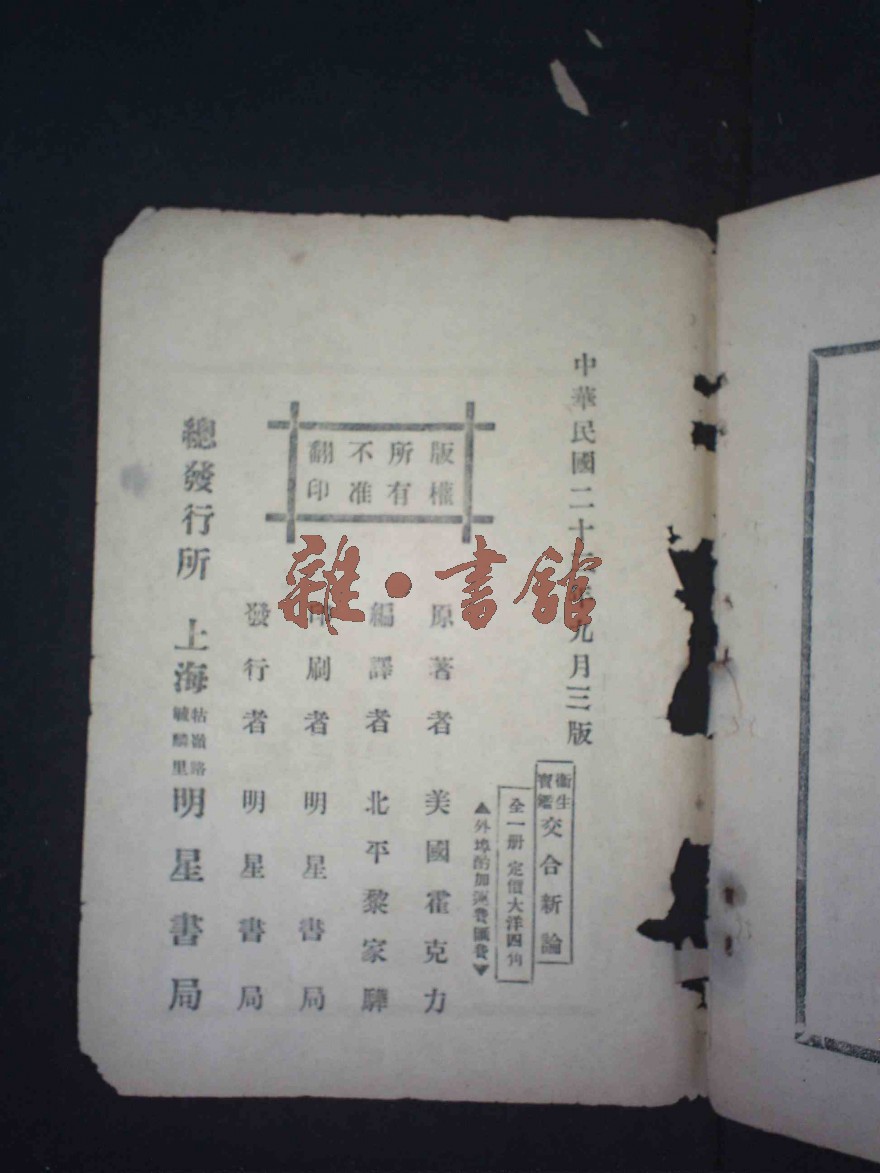 中華民國二十 年九月三版
衛生寶鑑 交合新論
全一册 定價大洋四角
▲外埠酌加 費匯費▼
版權所有 不准翻印
原著者 美國霍克力
編譯者 北平黎家驊
印刷者 明星書局
發行者 明星書局
總發行所 上海 牯嶺路毓麟里 明星書局
雜·書館